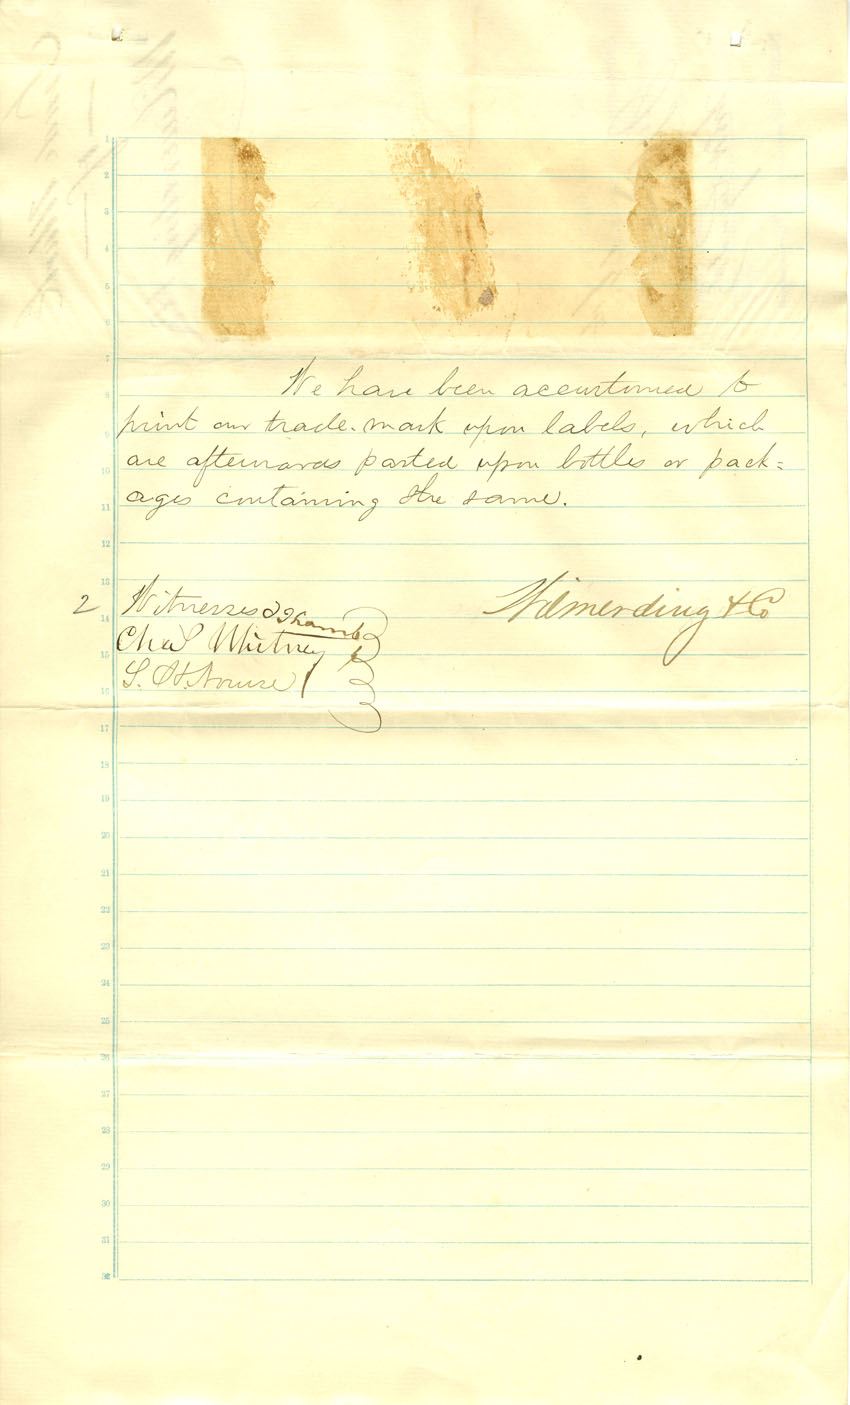 1
2
3
4
5
6
7
We have been accustomed to
8
print our trade-mark upon labels, which
9
are afterwards pasted upon bottles or pack=
10
ages containing the same.
11
12
13
2 Witnesses Wilmerding & Co
14
Chas Whitney
15
16
17
18
19
20
21
22
23
24
25
26
27
28
29
30
31
32